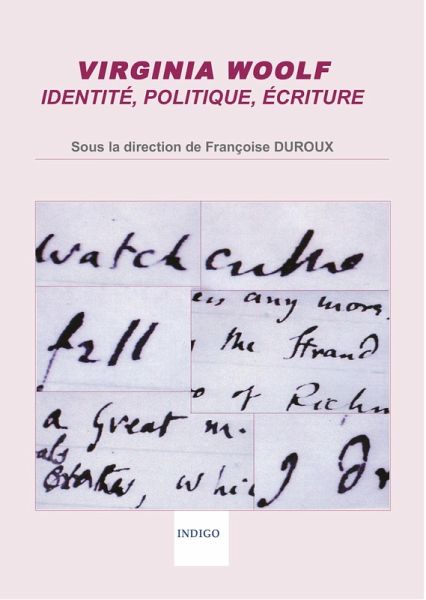 VIRGINIA WOOLF
IDENTITÉ, POLITIQUE, ÉCRITURE
Sous la direction de Françoise DUROUX
watch
fell
any more
the Strand
of Richm
a Great m.
whi
I
INDIGO